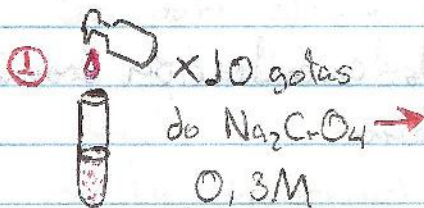 ① x10 gotas
do Na₂CrO₄ →
0,3M